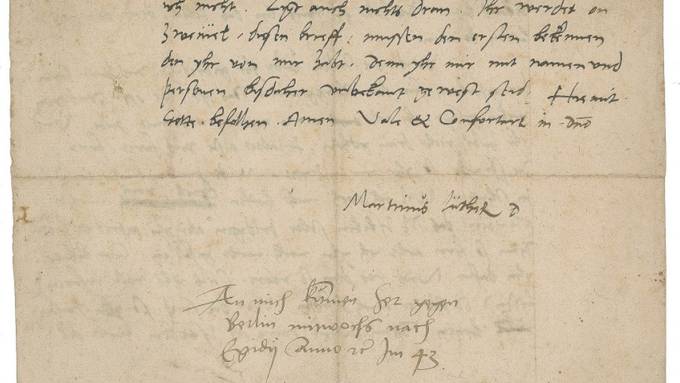 ich nicht. Ligt auch nichts dran. Ihr werdet on
Zweiuel, diesen brieff, mussen den ersten bekennen
den yhr von mir habt. denn yhr mir mit namen und
personen bisdaher unbekant gewest seid. Hie mit
Gotte befolhen. Amen Vale & Confortare in dno
Martinus Luther d
An mich kummen her gegen
Berlin mitwochs nach
Egidij Anno &c Im 43